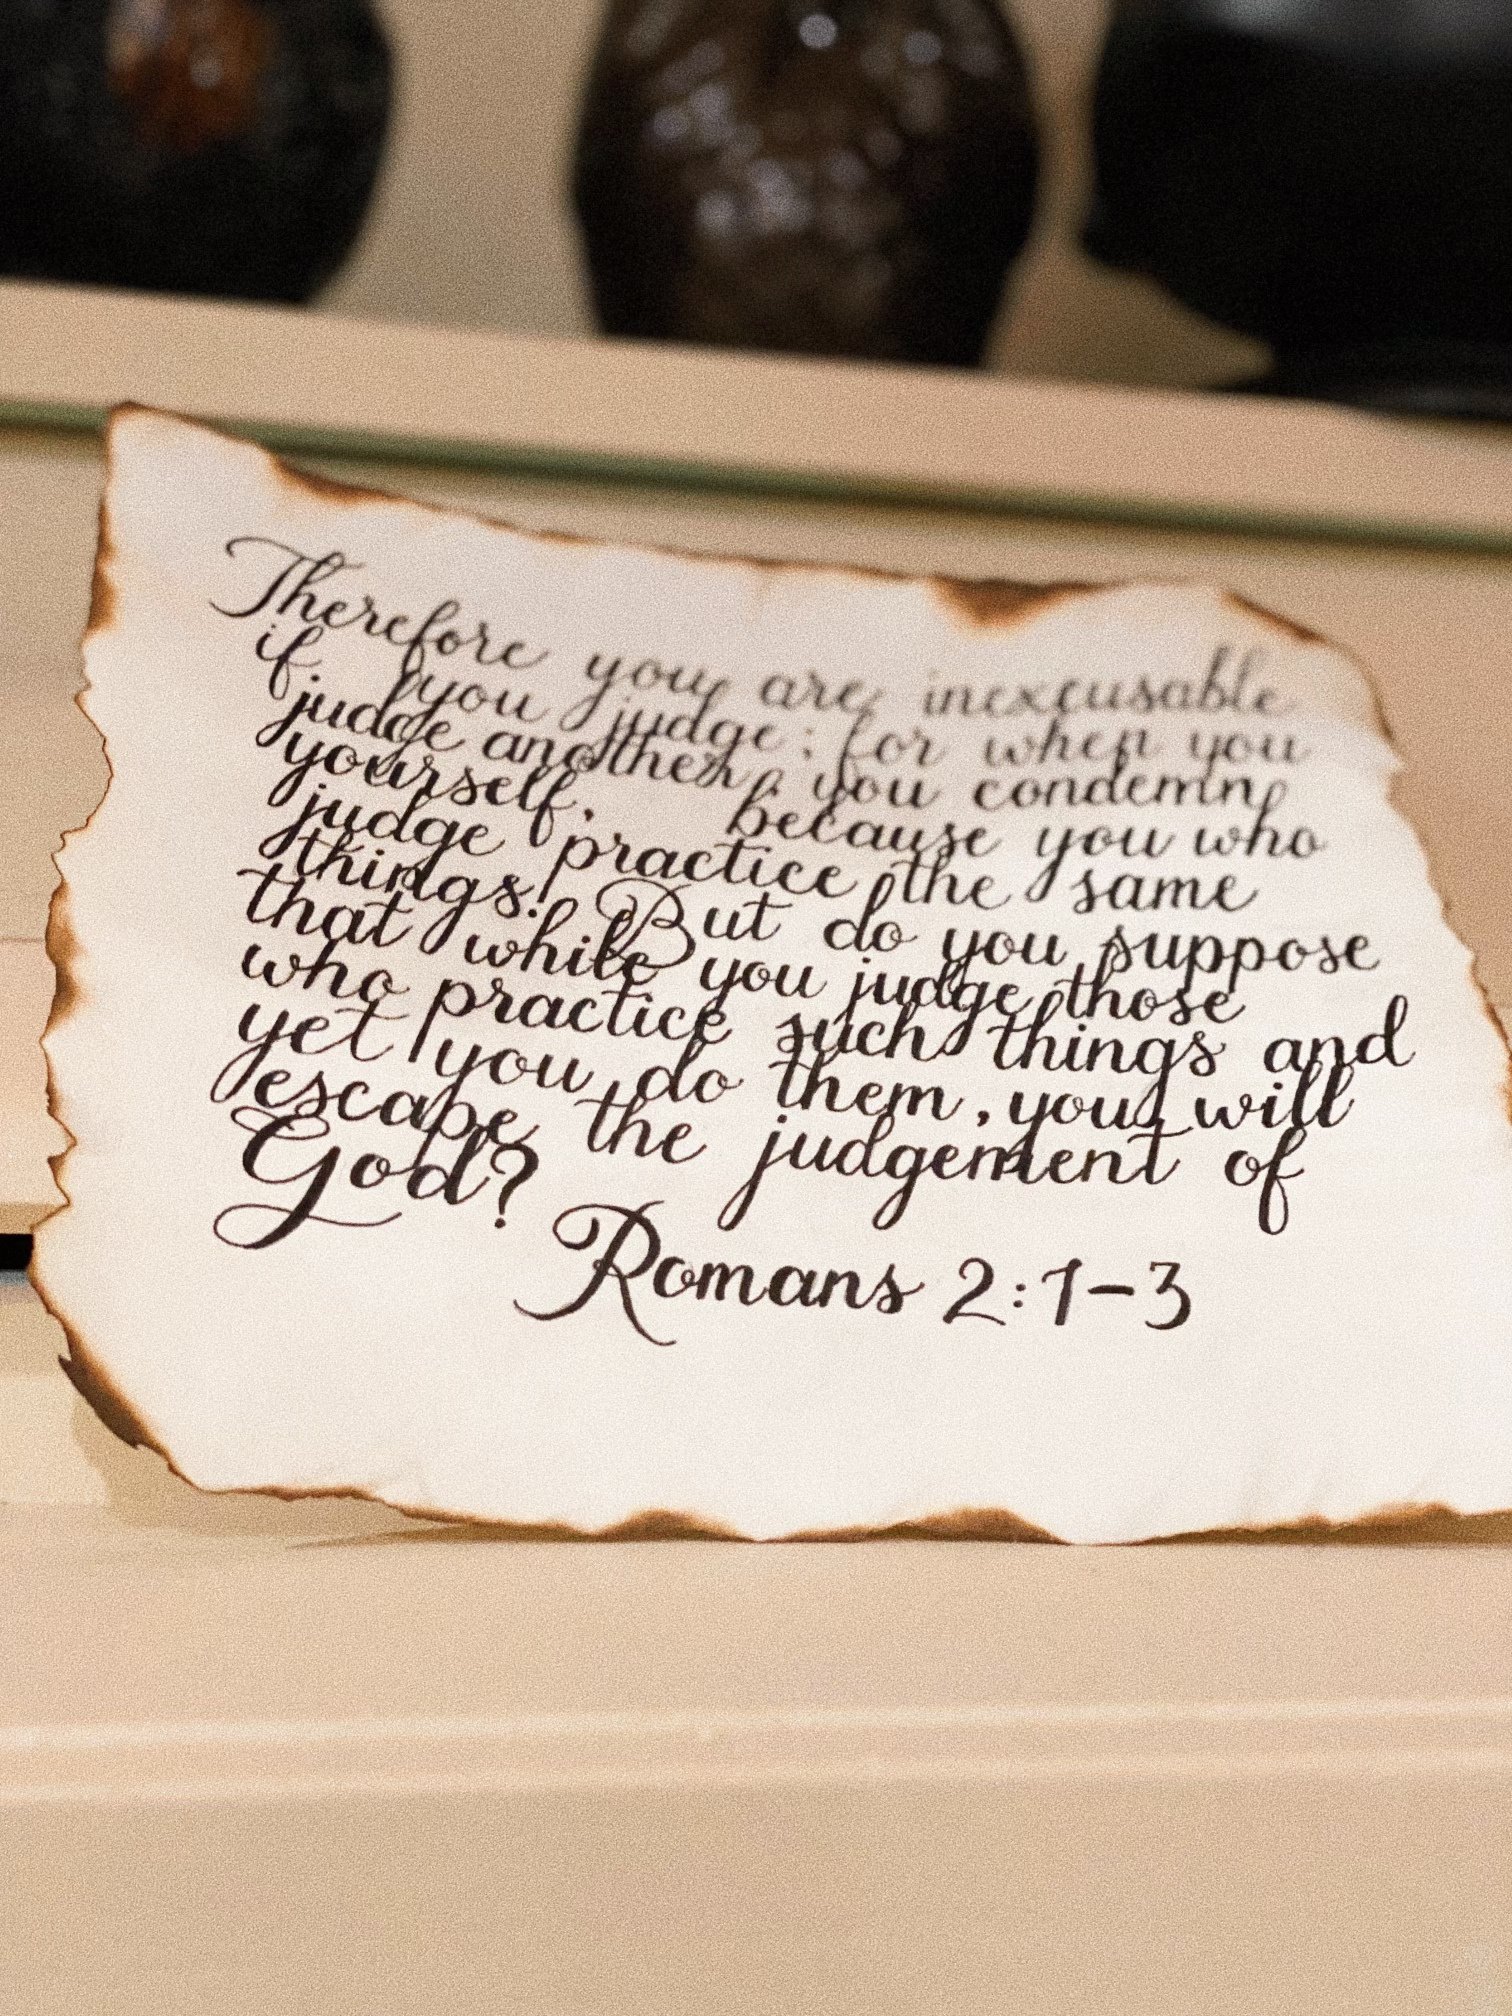 Therefore you are inexcusable
if you judge; for when you
judge another, you condemn
yourself, because you who
judge practice the same
things! But do you suppose
that while you judge those
who practice such things and
yet you do them, you will
escape the judgement of
God?
Romans 2:1-3